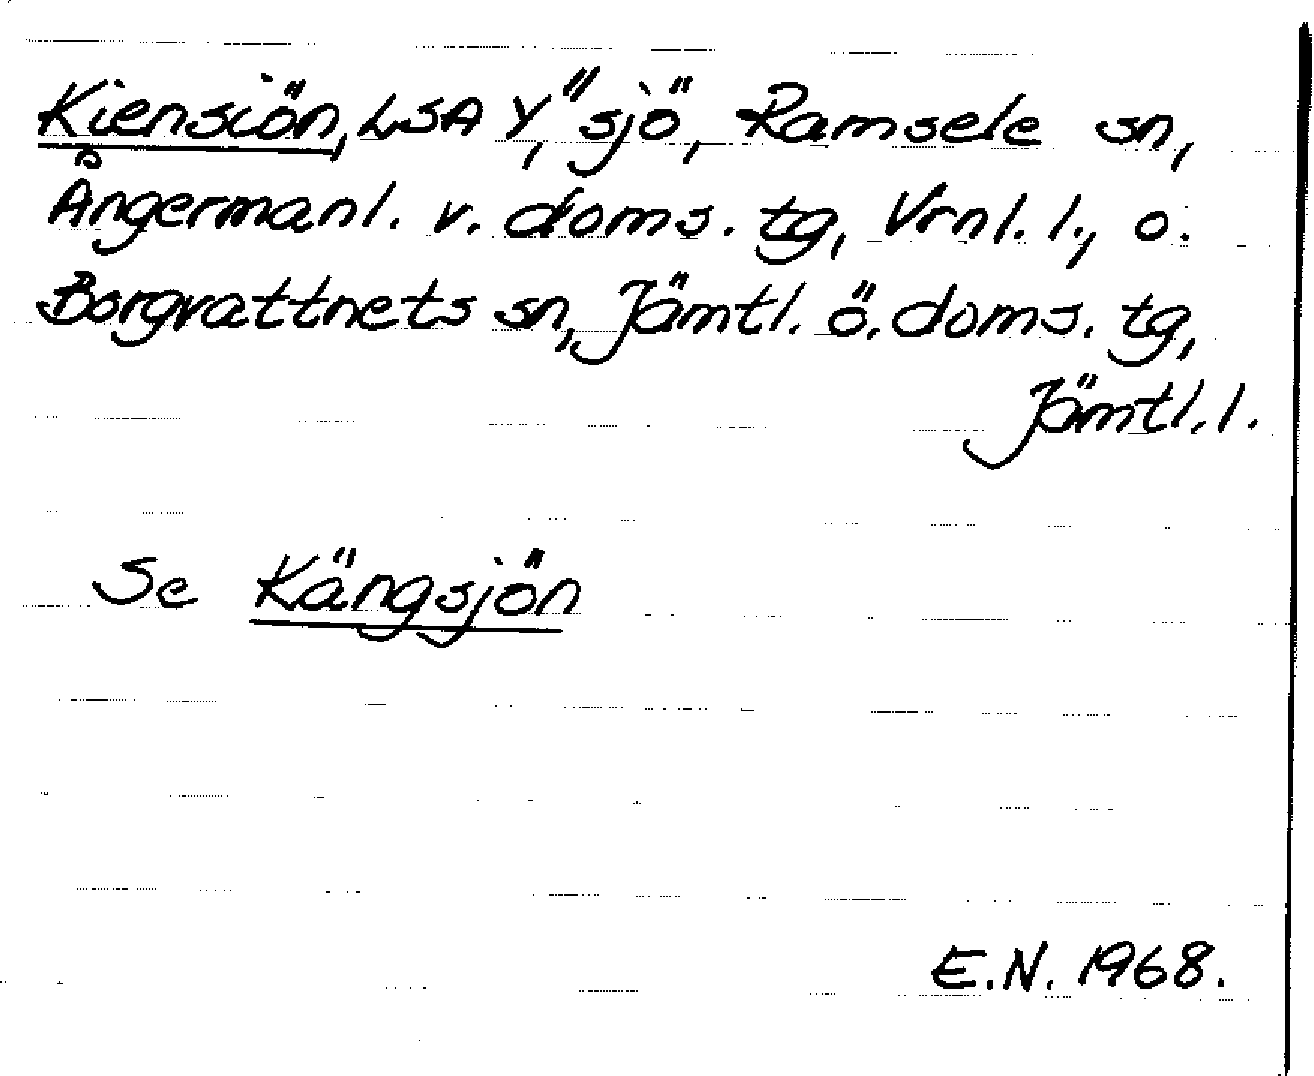 Kiensiön, LSA Y", sjö, Ramsele sn,
Ångermanl. v. doms. tg, Vrnl. l., o.
Borgvattnets sn, Jämtl. ö. doms. tg,
Jämtl. l.
Se Kängsjön
E.N. 1968.